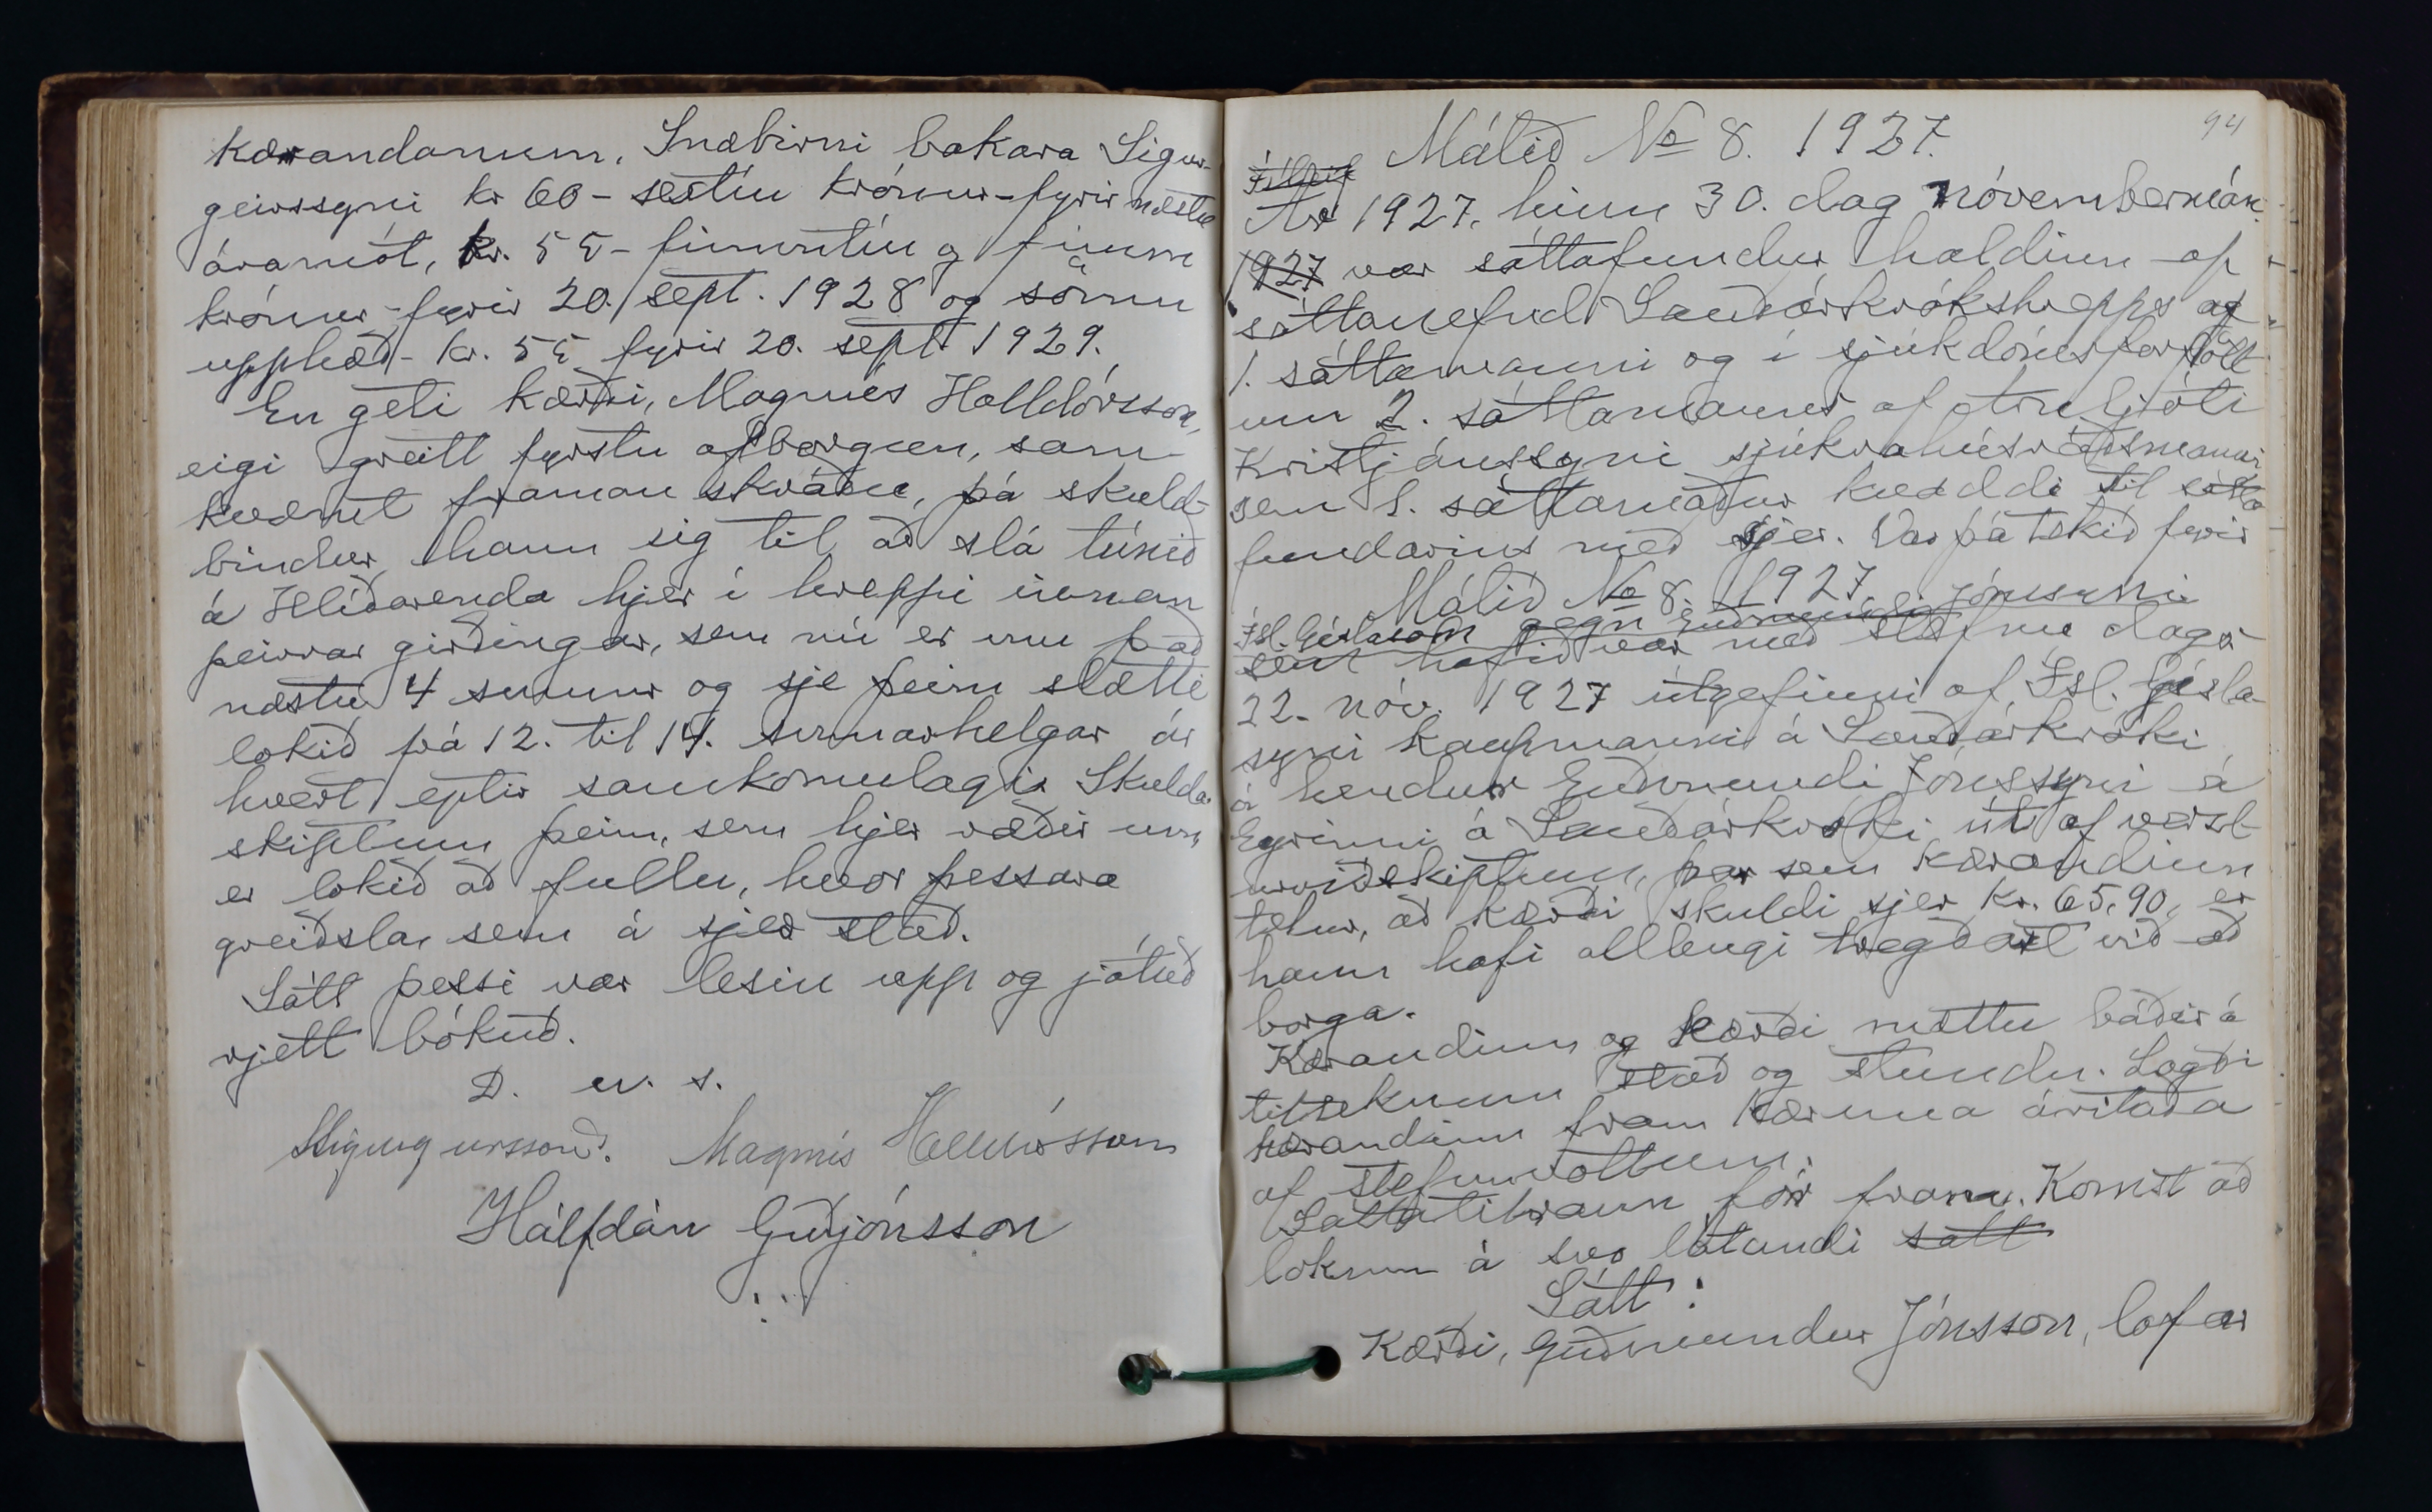 kærandanum, Snæbirni bakara Sigur-
geirssyni kr 60 - sextíu krónur - fyrir næstu
áramót, kr. 55 - fimmtíu og fimm
krónur - fyrir 20. sept. 1928 og sömu
upphæð - kr. 55 fyrir 20. sept. 1929.
En geti kærði, Magnús Halldórsson,
eigi greitt fyrstu afborgun, sam-
kvæmt framan skráðu, þá skuld-
bindur hann sig til að slá túnið
á Hlíðarenda hjer í hreppi innan
þeirrar girðingar, sem nú er um það
næstu 4 sumur og sje þeim slætti
lokið frá 12. til 14. sumarhelgar ár
hvert eptir samkomulagi. Skulda-
skiptum þeim, sem hjer ræðir um,
er lokið að fullu, hvor þessara
greiðsla, sem á sjer stað.
Sátt þessi var lesin upp og játuð
rjett bókuð.
D. u. s.
Magnús Halldórsson
Hálfdán Guðjónsson
94
Málið No 8. 1927.
Ár 1927, hinn 30. dag nóvembermán.
1927 var sáttafundur haldinn af
sáttanefnd Sauðárkrókshrepps af
1. sáttamanni og í sjúkdómsforföll-
um 2. sáttamanns af Arnljóti
Kristjánssyni sjúkrahúsráðsmanni,
sem 1. sáttamaður kvaddi til sátta
fundarins með sjer. Var þá tekið fyrir
Málið No 8. 1927
Ísl. Gíslason gegn Guðmundi Jónssyni
sem hafið var með stefnu dags.
22. nóv. 1927 útgefinni af Ísl. Gísla-
syni kaupmanni á Sauðárkróki
á hendur Guðmundi Jónssyni á
Eyrinni á Sauðárkróki út af verzl-
unviðskiptum, þar sem kærandinn
telur, að kærði skuldi sjer kr. 65,90, er
hann hafi allengi tregðast við að
borga.
Kærandinn og kærði mættu báðir á
tilteknum stað og stundu. Lagði
kærandinn fram kæruna áritaða
af stefnuvottum.
Sáttatilraun fór fram. Komst að
lokum á svo látandi sátt
Sátt:
Kærði, Guðmundur Jónsson, lofar